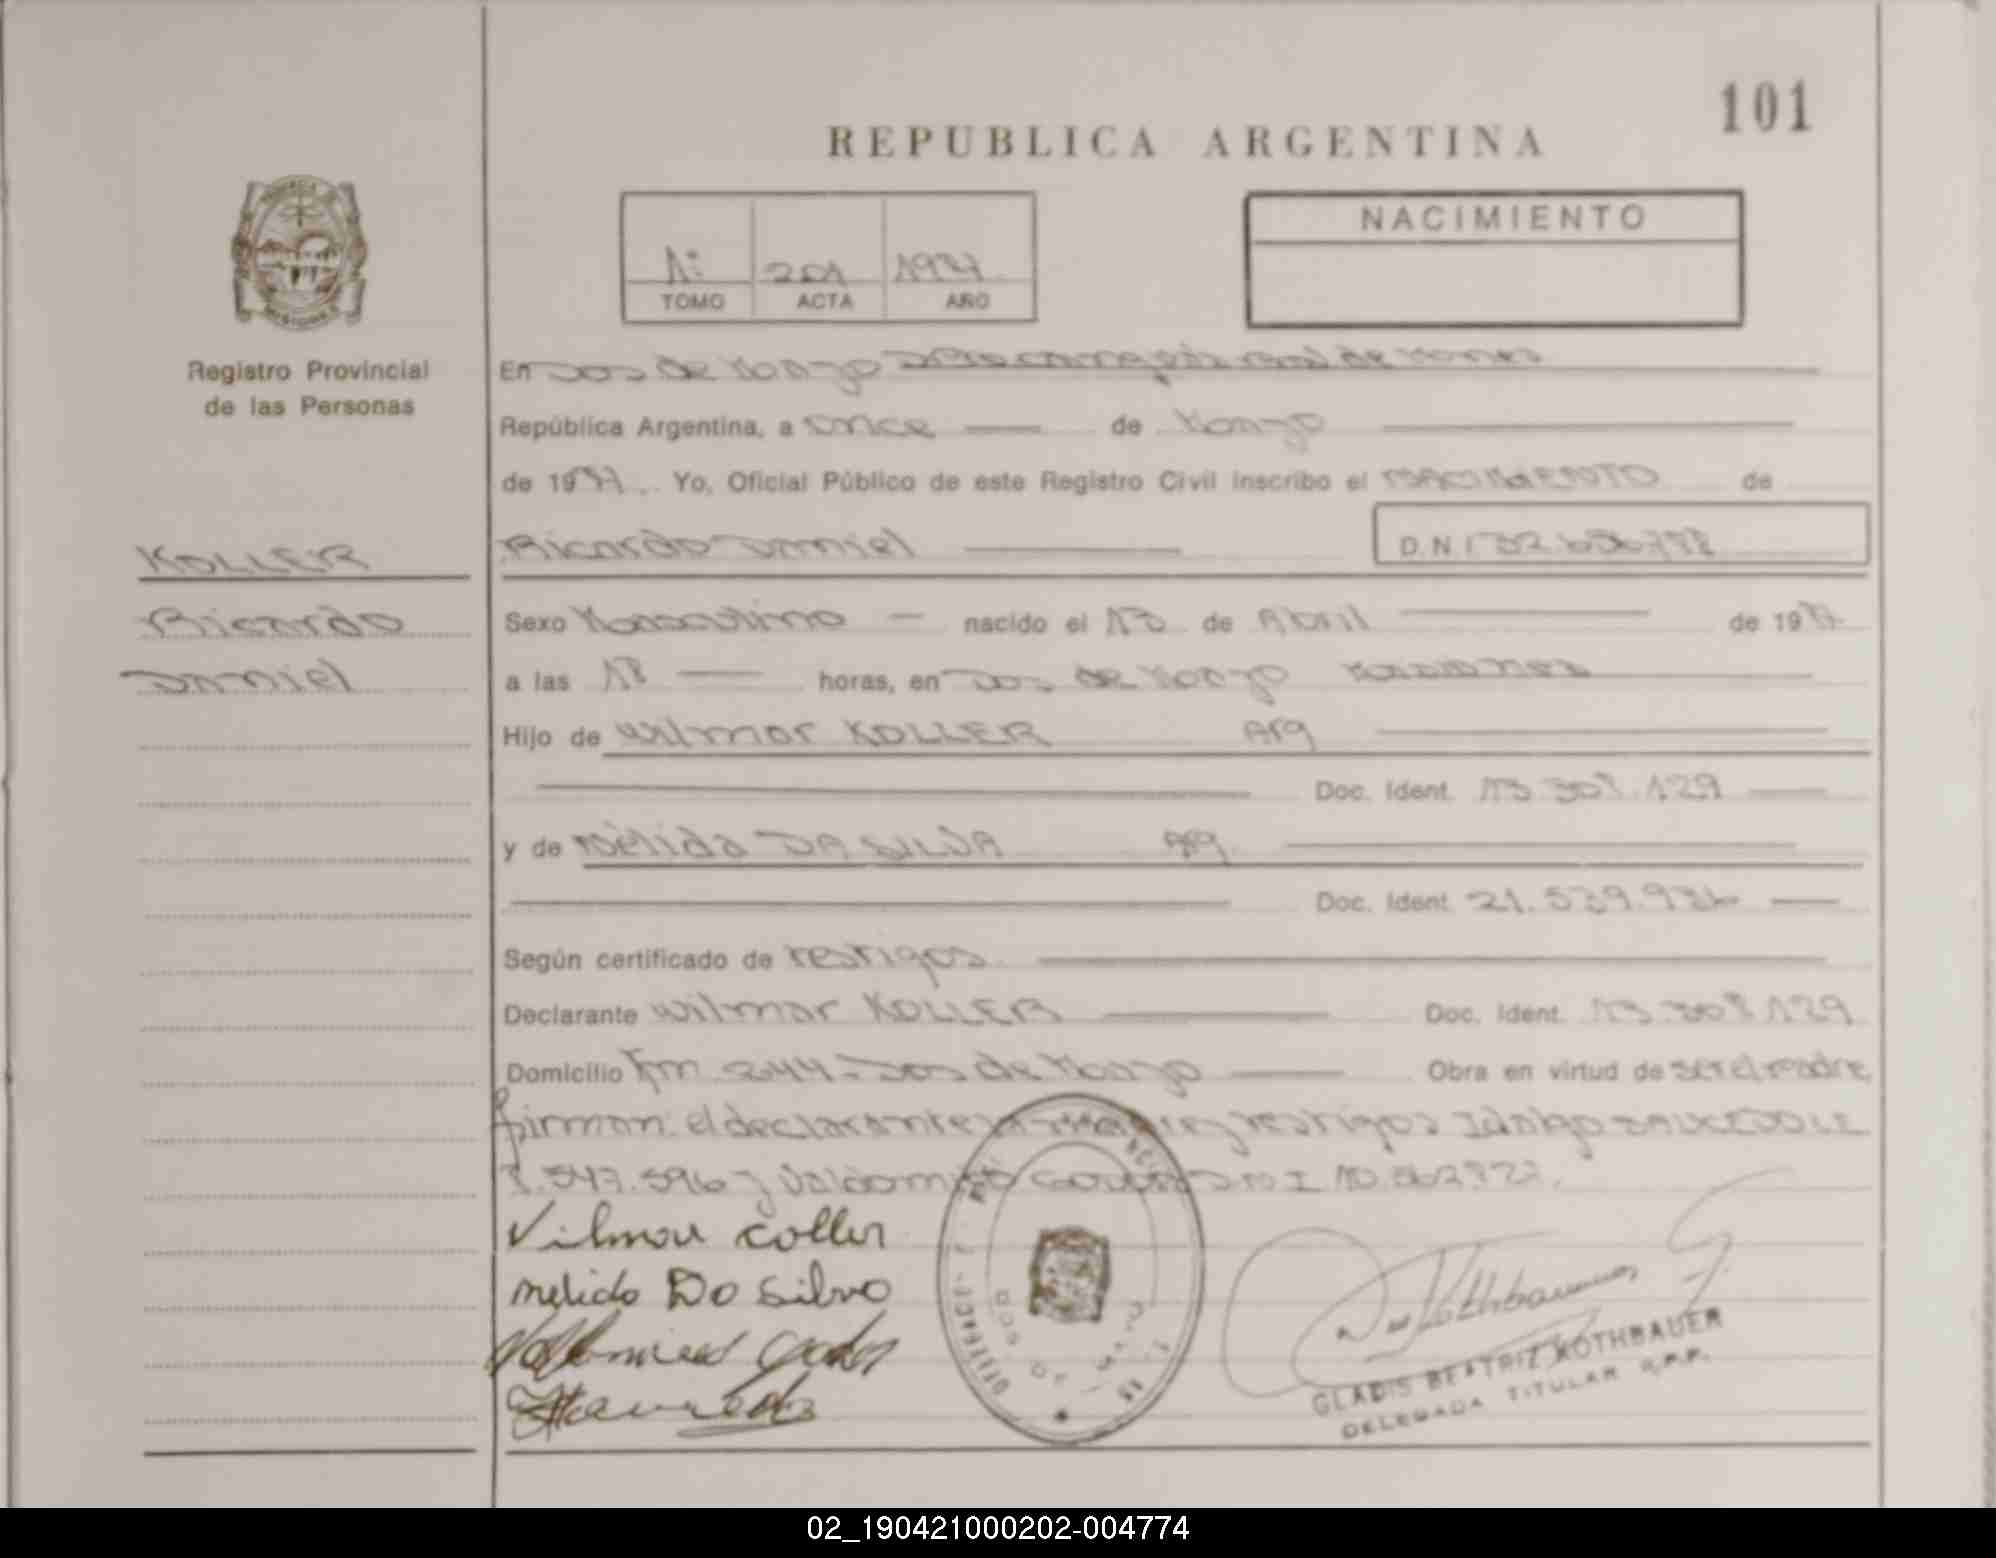 101
REPUBLICA ARGENTINA
NACIMIENTO
1º 201
TOMO ACTA AÑO
Registro Provincial
de las Personas
En Dos de Mayo
República Argentina, a once de Mayo
de 19 Yo, Oficial Público de este Registro Civil inscribo el NACIMIENTO de
KOLLER
Ricardo Daniel D.N.I.
Ricardo
Daniel
Sexo Masculino nacido el 13 de Abril de 19
a las 18 horas, en Dos de Mayo Misiones
Hijo de Wilmar KOLLER Arg
Doc. Ident. 13.308.129
y de Nélida DA SILVA Arg
Doc. Ident. 21.539.
Según certificado de testigos
Declarante Wilmar KOLLER Doc. Ident. 13.308.129
Domicilio Km. 244 - Dos de Mayo Obra en virtud de ser el padre
firman: el declarante y testigos
8.547.596 y DNI
Vilmar Coller
Nelida Da Silva
GLADIS BEATRIZ ROTHBAUER
DELEGADA TITULAR R.P.P.
02_190421000202-004774